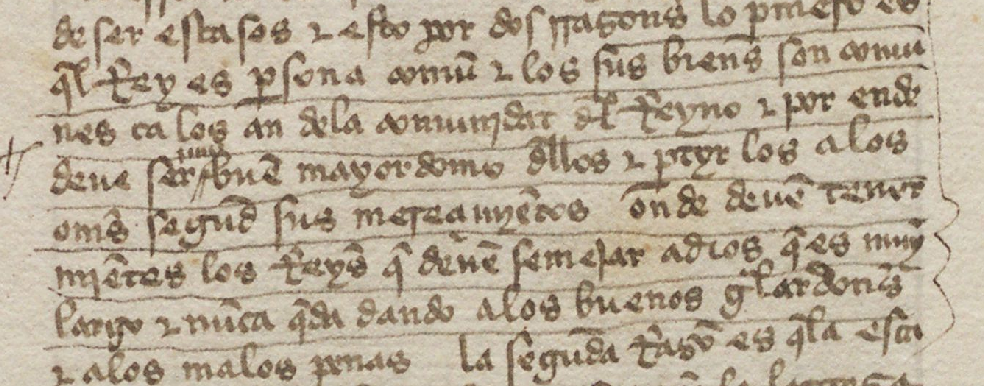 de ser escasos & esto por dos rragons lo pmero es
ql Rey es psona comũ & los sus biens̃ son comu
nes ca los an dela comunjdat dl Reyno & por ende
deue ser muy buẽ mayordomo dllos & ptyr los alos
oms̃ segũd sus mereçimyẽtos onde deuẽ tener
mjẽtes los Reys̃ q̃ deuẽ semejar adios q̃ es muy
largo & nũca q̃da dando alos buenos glardons̃
& alos malos penas la segũda Razõ es q̃la esca